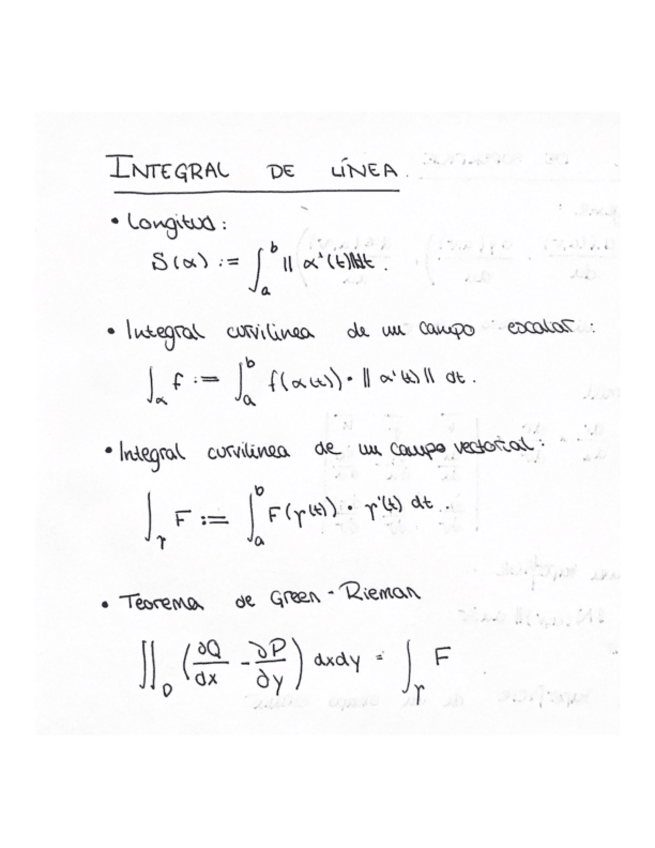 INTEGRAL DE LÍNEA.
• Longitud:
S(α) := ∫_a^b ‖α'(t)‖dt.
• Integral curvilinea de un campo escalar:
∫_α f := ∫_a^b f(α(t)) · ‖α'(t)‖ dt.
• Integral curvilinea de un campo vectorial:
∫_γ F := ∫_a^b F(γ(t)) · γ'(t) dt.
• Teorema de Green - Rieman
∬_D (∂Q/dx - ∂P/∂y) dxdy = ∫_γ F